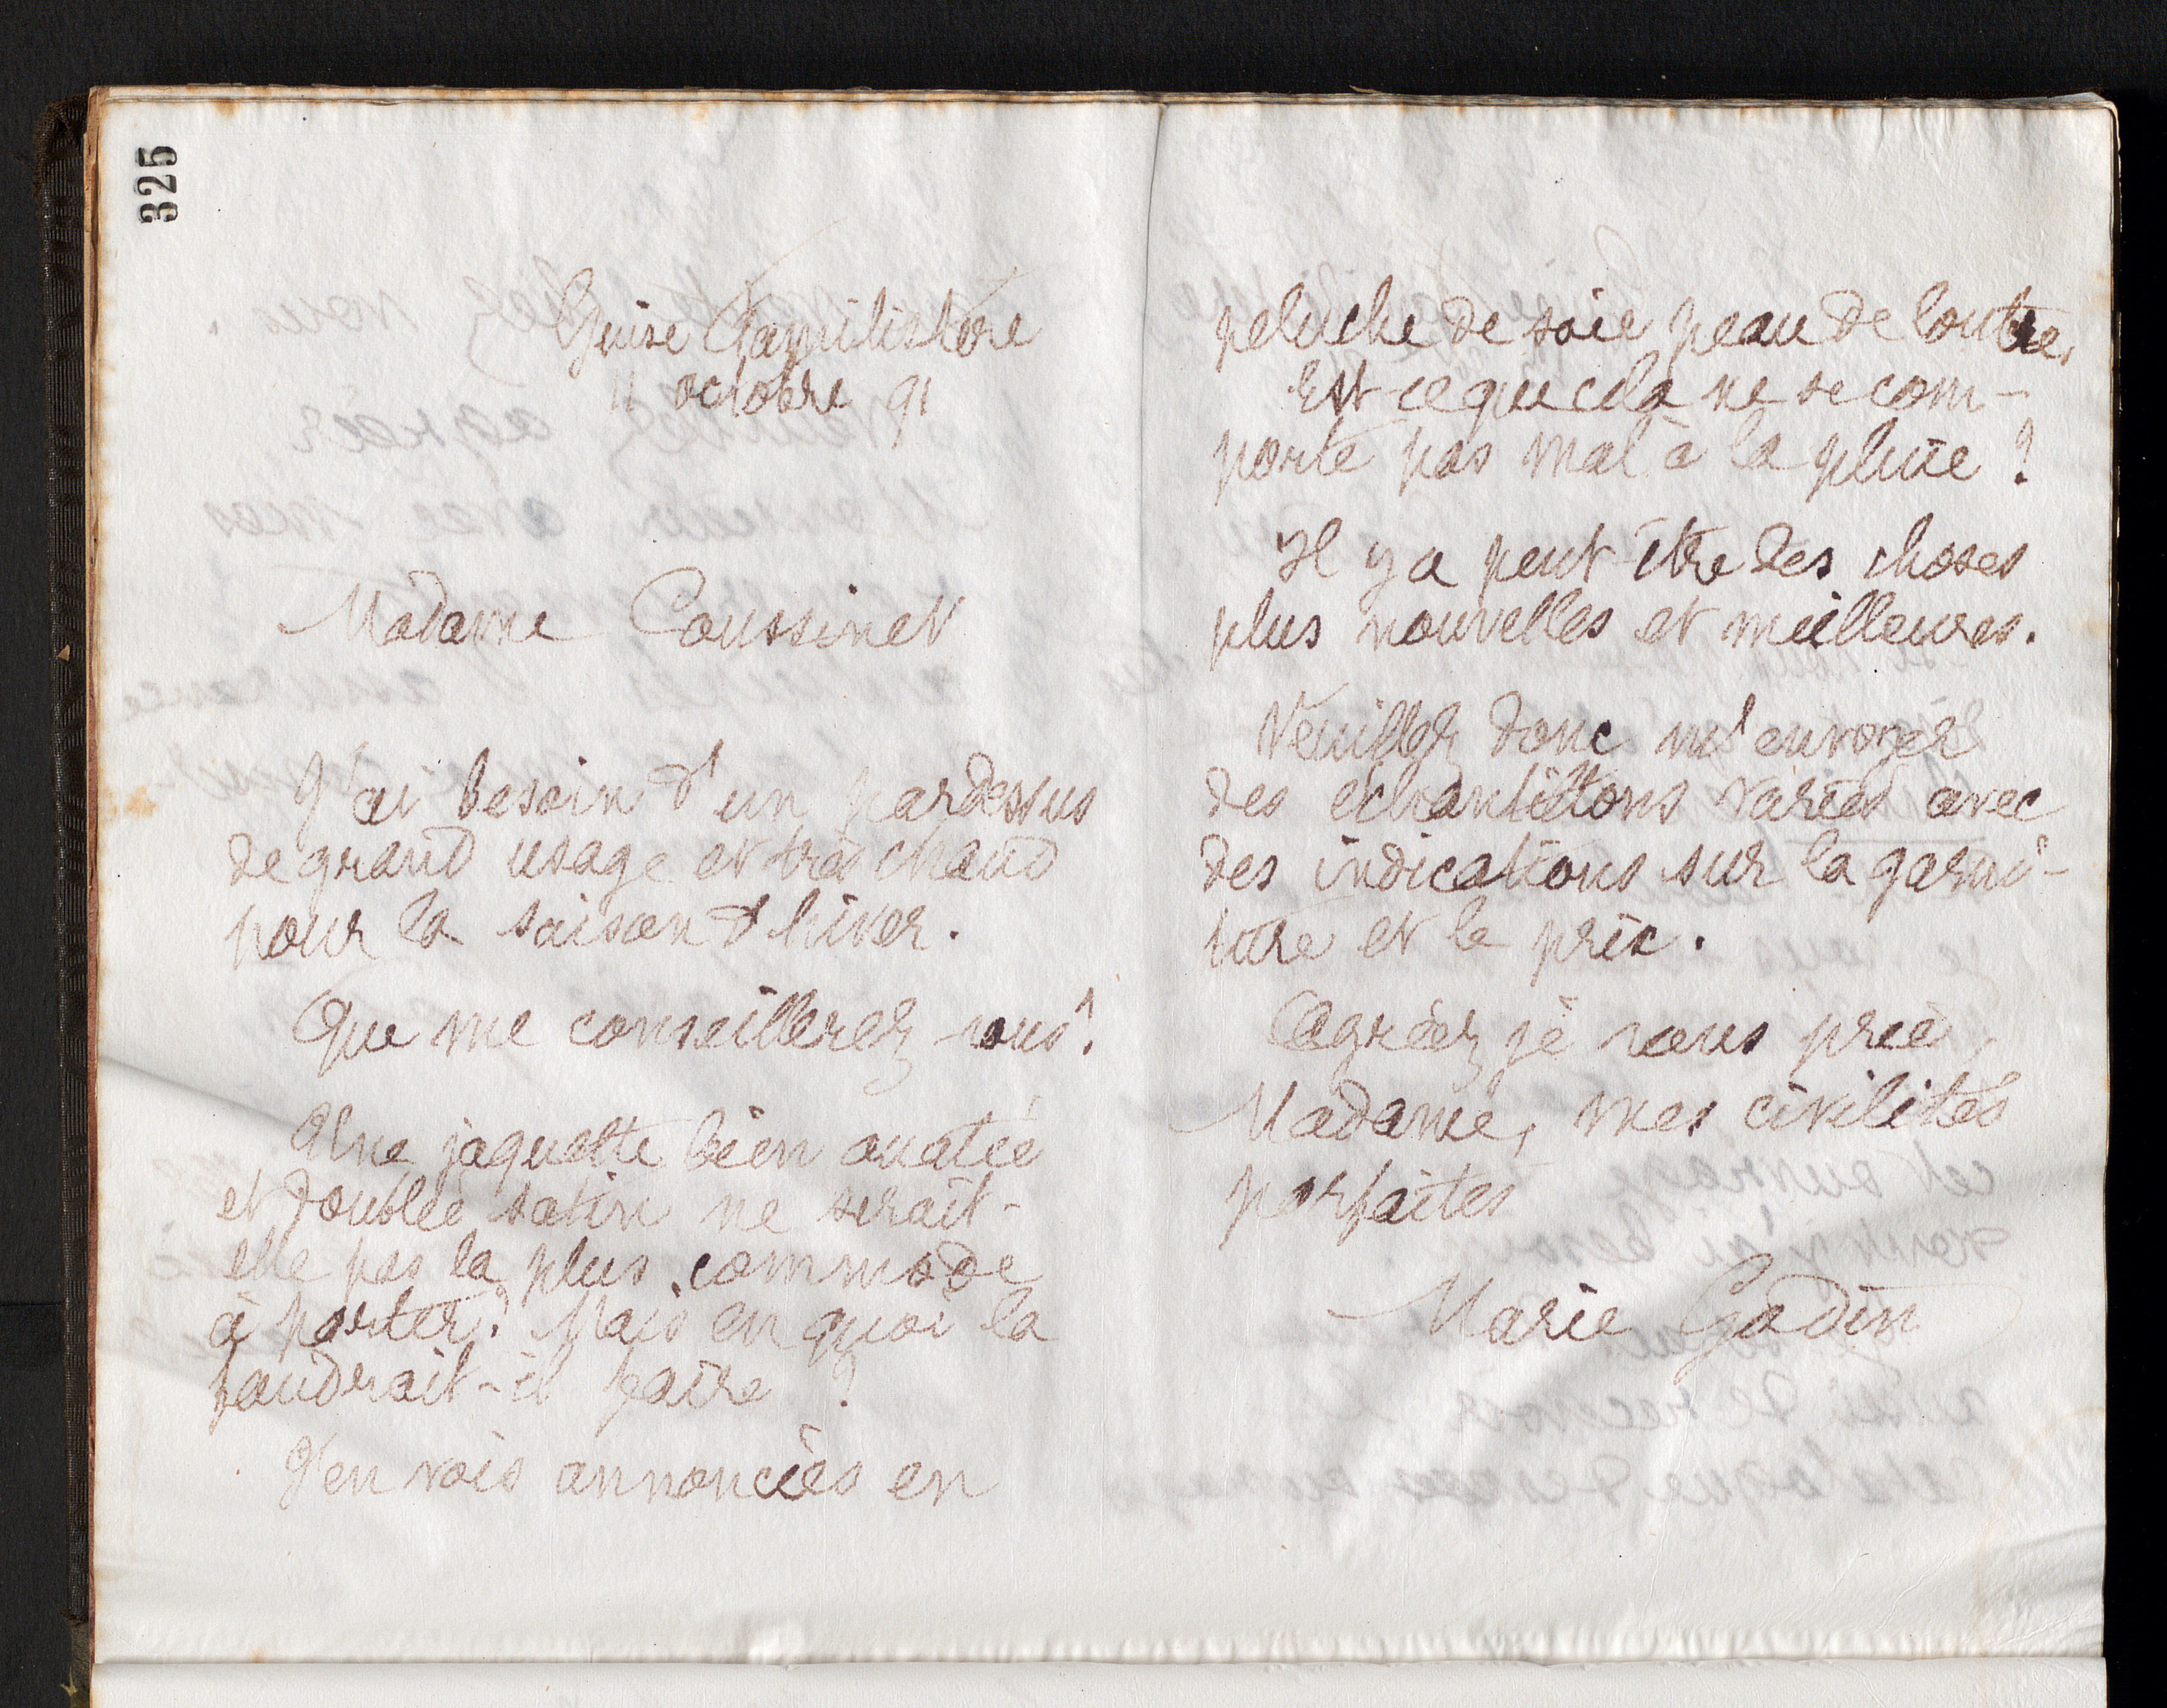 325
Guise Familistère
11 octobre 91
Madame Coussinet
J'ai besoin d'un pardessus
de grand usage et très chaud
pour la saison d'hiver.
Que me conseillerez-vous?
Une jaquette bien ouatée
et doublée satin ne serait-
elle pas la plus commode
à porter? Mais en quoi la
faudrait-il faire ?
J'en vois annoncées en
peluche de soie peau de loutre.
Est-ce que cela ne se com-
porte pas mal à la pluie ?
Il y a peut-être des choses
plus nouvelles et meilleures.
Veuillez donc m'envoyer
des échantillons variés avec
des indications sur la garni-
ture et le prix.
Agréez je vous prie,
Madame, mes civilités
parfaites
Marie Godin